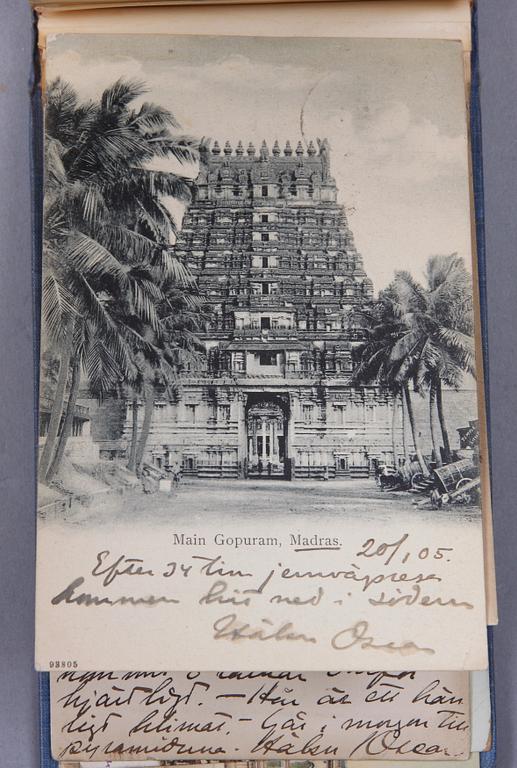 Main Gopuram, Madras.
20/1 05.
Efter 34 tim jernvägsresa
kommen hit ned i södern
Hälsn Oscar
93805
hjärtligt. – Här är ett här
ligt klimat. – Går i morgon till
pyramiderna. Hälsn Oscar